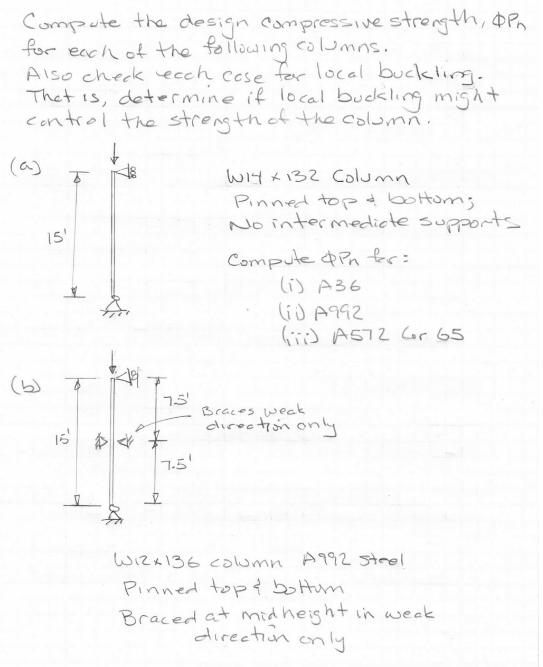 Compute the design compressive strength, ΦPn
for each of the following columns.
Also check each case for local buckling.
That is, determine if local buckling might
control the strength of the column.
(a)
W14 x 132 Column
Pinned top & bottom;
No intermediate supports
15'
Compute ΦPn for:
(i) A36
(ii) A992
(iii) A572 Gr 65
(b)
7.5'
Braces weak
direction only
15'
7.5'
W12x136 column A992 Steel
Pinned top & bottom
Braced at midheight in weak
direction only